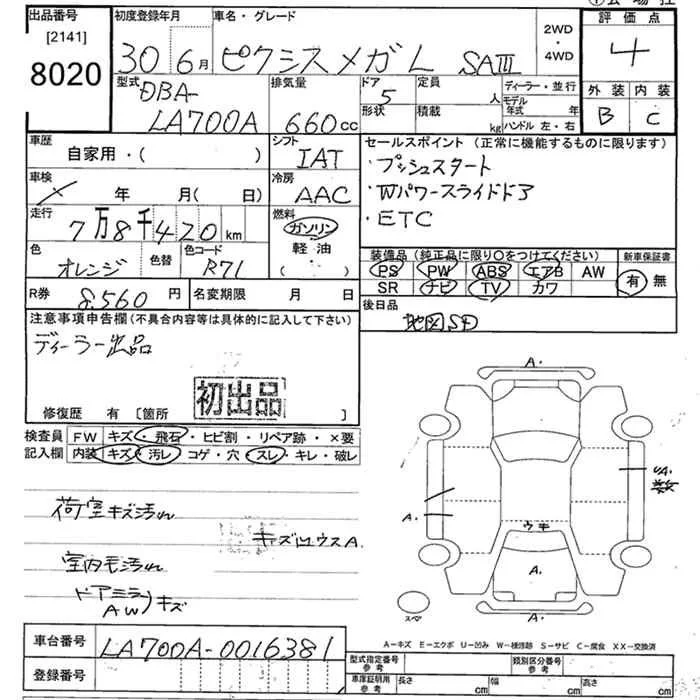 出品番号
[2141]
8020
初度登録年月
30年6月
車名・グレード
ピクシスメガ L SAIII
2WD
・
4WD
評価点
4
外装 内装
B C
型式
DBA-
LA700A
排気量
660cc
ドア
5
形状
定員
人
積載
kg
ディーラー・並行
モデル年式 年
ハンドル 左・右
車歴
自家用・( )
シフト
IAT
セールスポイント(正常に機能するものに限ります)
・プッシュスタート
・Wパワースライドドア
・ETC
車検
年 月( 日)
冷房
AAC
走行
7万8千420km
燃料
ガソリン
軽・油
( ・ )
色
オレンジ
色替
色コード
R71
装備品(純正品に限り○をつけてください)
PS PW ABS エアB AW
SR ナビ TV カワ
新車保証書
有 無
R券
8,560円
名変期限 月 日
後日品
地図SD
注意事項申告欄(不具合内容等は具体的に記入して下さい)
ディーラー出品
初出品
修復歴 有 [箇所 ]
検査員
記入欄
FW キズ・飛石・ヒビ割・リペア跡・×要
内装 キズ・汚レ・コゲ・穴・スレ・キレ・破レ
荷室キズ汚れ
室内毛汚れ
ドアミラー
AW キズ
A・
A・
ウキ
A.
スペ
A-キズ E-エクボ U-凹み W-補修跡 S-サビ C-腐食 XX-交換済
車台番号
LA700A-0016381
登録番号
型式指定番号
参考
類別区分番号
参考
車庫証明用
参考
長さ cm 幅 cm 高さ cm